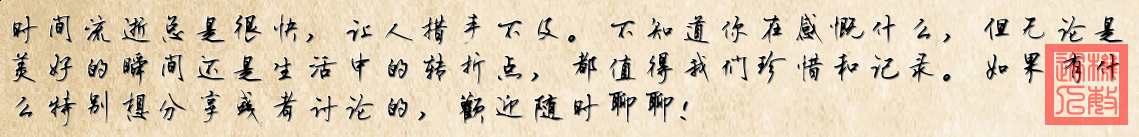 时间流逝总是很快，让人措手不及。不知道你在感慨什么，但无论是
美好的瞬间还是生活中的转折点，都值得我们珍惜和记录。如果有什
么特别想分享或者讨论的，歡迎随时聊聊！